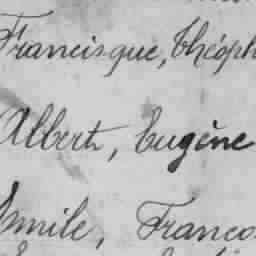 Francisque, Théoph
Albert, Eugène
Emile, Franço